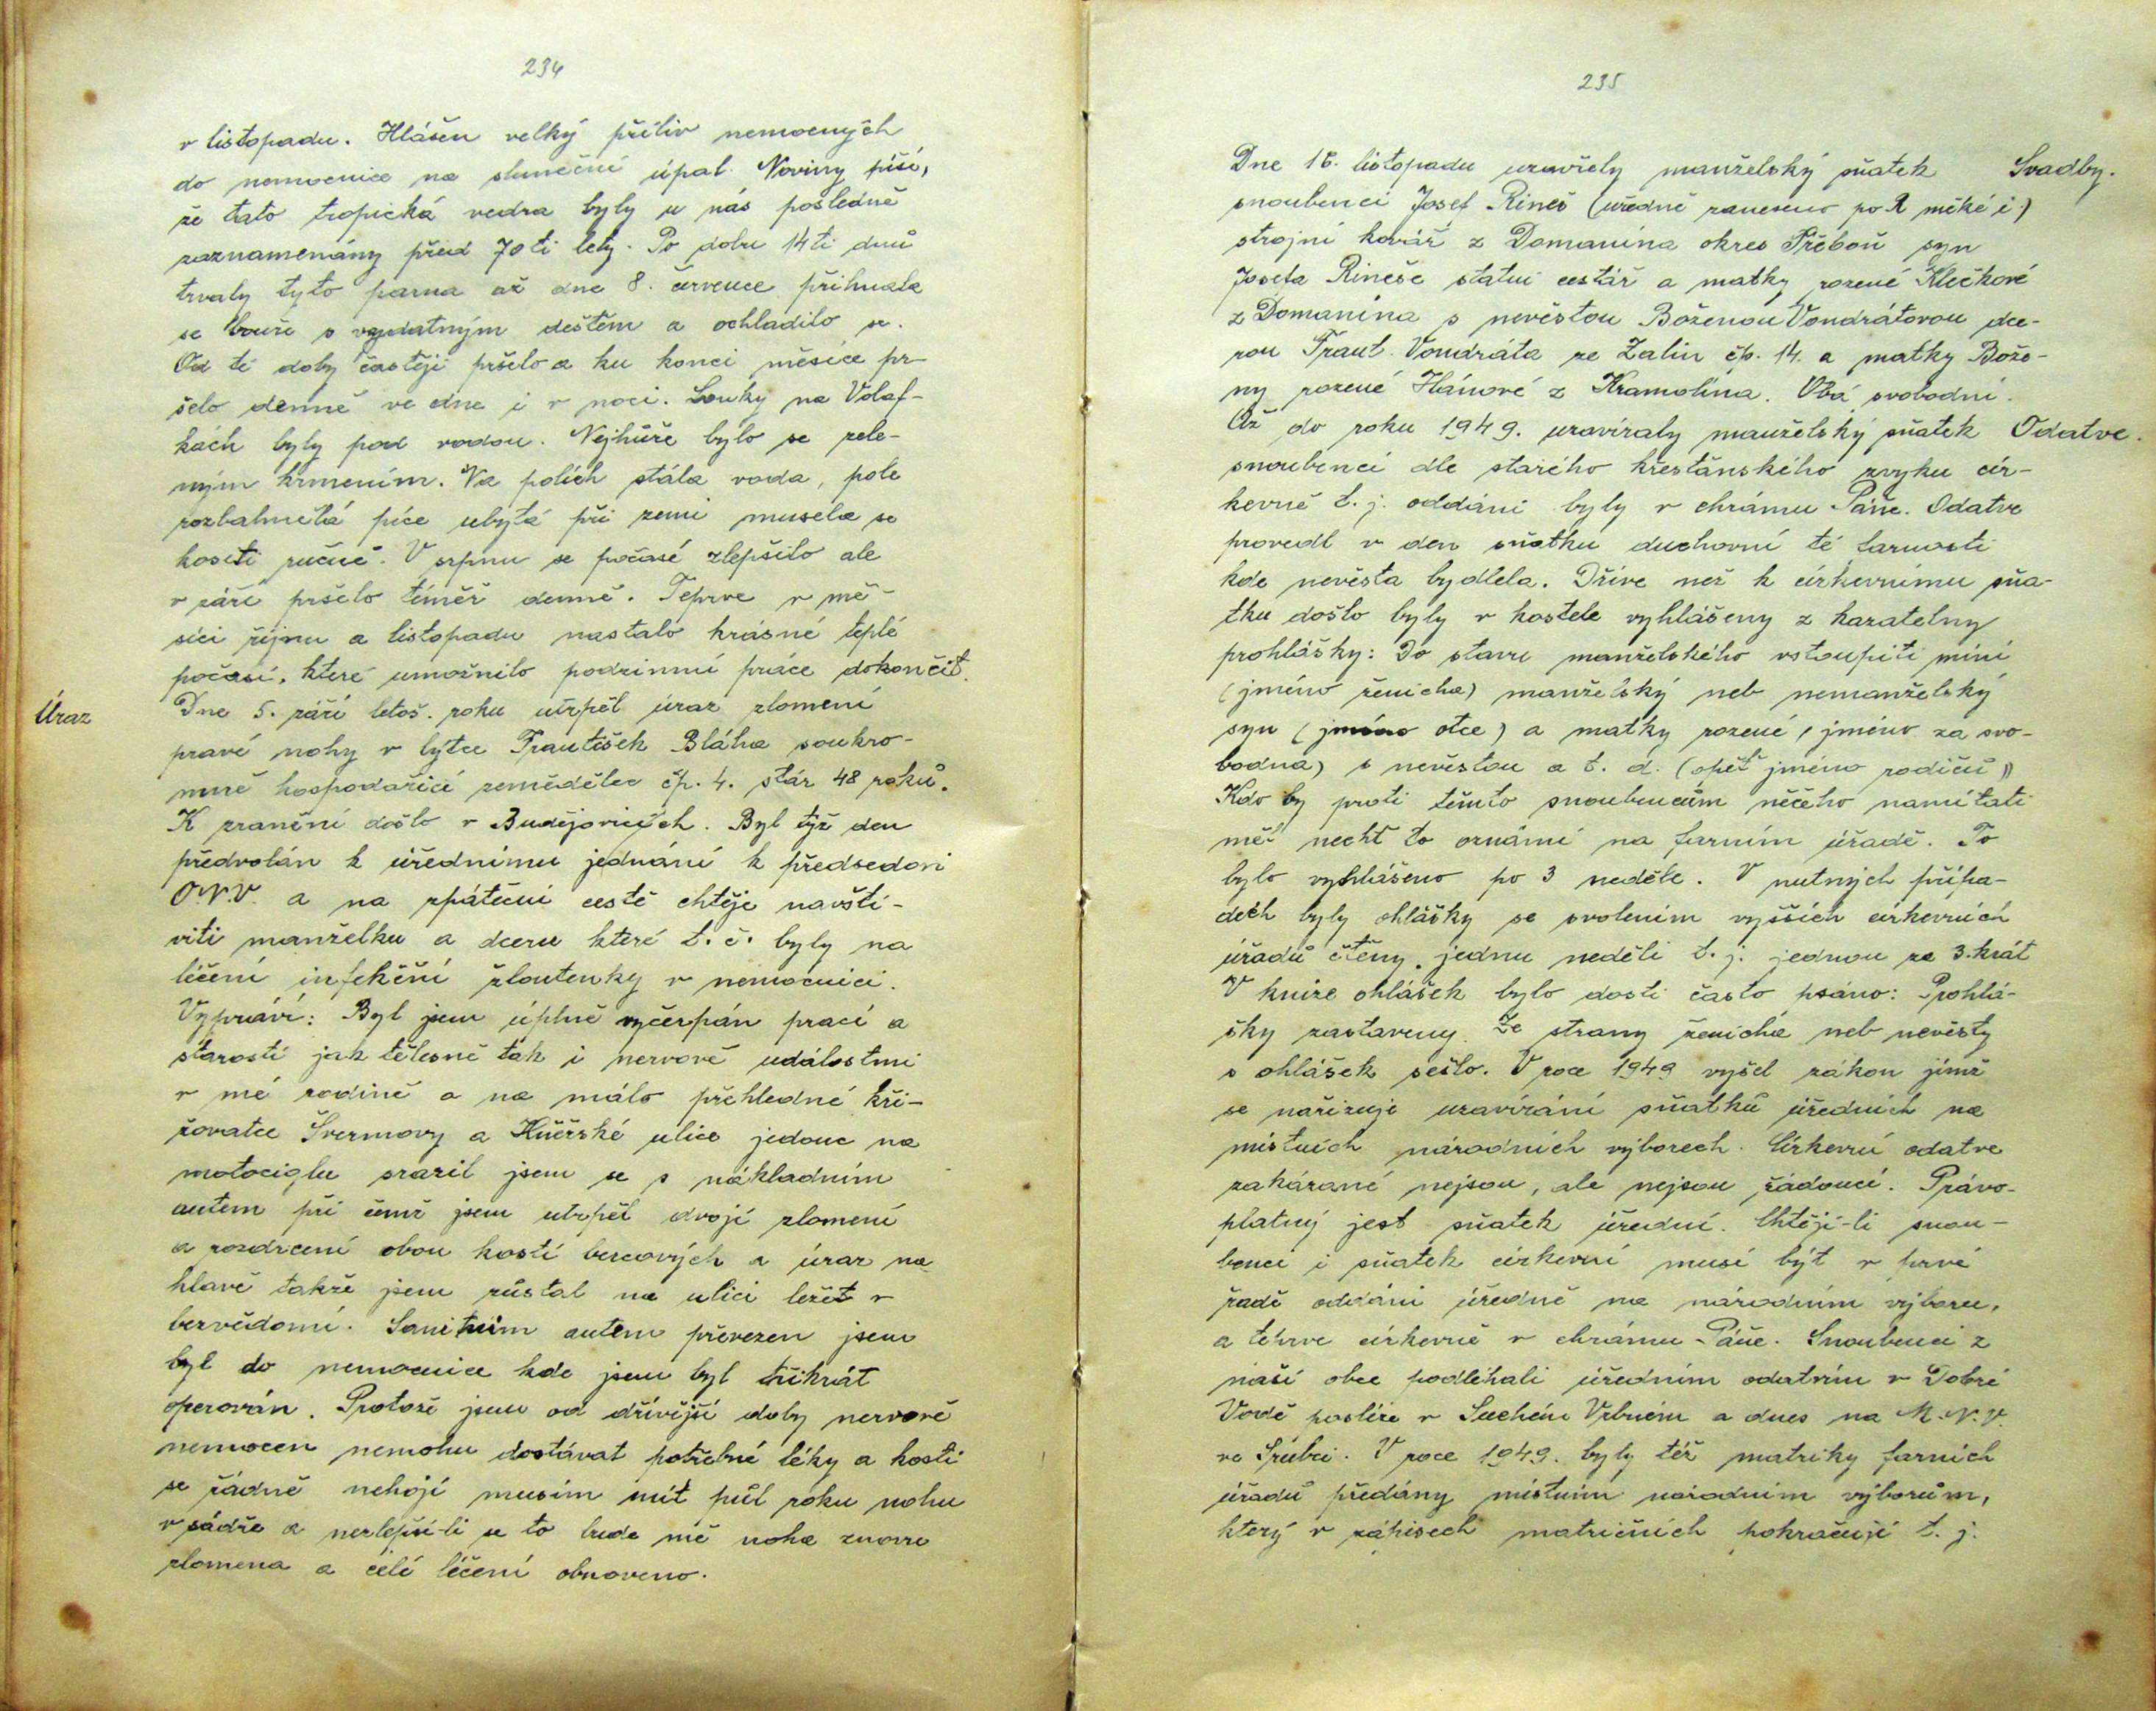 234
v listopadu. Hlášen velký příliv nemocných
do nemocnice na sluneční úpal. Noviny píší,
že tato tropická vedra byly u nás posledně
zaznamenány před 70ti lety. Po dobu 14ti dnů
trvaly tyto parna až dne 8. července přihnala
se bouře s vydatným deštěm a ochladilo se.
Od té doby častěji pršelo a ku konci měsíce pr-
šelo denně ve dne i v noci. Louky na Volaf-
kách byly pod vodou. Nejhůře bylo se zele-
ným krmením. Na polích stála voda, pole
rozbahnělá píce ubytá při zemi musela se
kositi ručně. V srpnu se počasé zlepšilo ale
v září pršelo téměř denně. Teprve v mě-
síci říjnu a listopadu nastalo krásné teplé
počasí, které umožnilo podzimní práce dokončit.
Úraz
Dne 5. září letoš. roku utrpěl úraz zlomení
pravé nohy v lýtce František Bláha soukro-
mně hospodařící zemědělec čp. 4. stár 48 roků.
K zranění došlo v Budějovicích. Byl týž den
předvolán k úřednímu jednání k předsedovi
O.N.V. a na zpáteční cestě chtěje navští-
viti manželku a dceru které t. č. byly na
léčení infekční žloutenky v nemocnici.
Vypráví: Byl jsem úplně vyčerpán prací a
starostí jak tělesně tak i nervově událostmi
v mé rodině a na málo přehledné kři-
žovatce Švermovy a Kněžské ulice jedouc na
motociglu srazil jsem se s nákladním
autem při čemž jsem utrpěl dvojí zlomení
a rozdrcení obou kostí bercových a úraz na
hlavě takže jsem zůstal na ulici ležet v
bezvědomí. Sanitním autem převezen jsem
byl do nemocnice kde jsem byl třikrát
operován. Protože jsem od dřívější doby nervově
nemocen nemohu dostávat potřebné léky a kosti
se řádně nehojí musím mít půl roku nohu
v sádře a nezlepší-li se to bude mě noha znovu
zlomena a celé léčení obnoveno.
235
Svadby.
Dne 16. listopadu uzavřely manželský sňatek
snoubenci Josef Rineš (úředně zaneseno po R měké i)
strojní kovář z Domanína okres Třeboň syn
Josefa Rineše statní cestář a matky rozené Klečkové
z Domanína s nevěstou Boženou Vondrátovou dce-
rou Frant. Vondráta ze Zalin čp. 14. a matky Bože-
ny rozené Hánové z Kramolína. Obá svobodní.
Odatve.
Až do roku 1949. uzavíraly manželský sňatek
snoubenci dle starého křestǎnského zvyku cír-
kevně t. j. oddáni byly v chrámu Páně. Odatve
provedl v den sňatku duchovní té farnosti
kde nevěsta bydlela. Dříve než k církevnímu sňa-
tku došlo byly v kostele vyhlášeny z kazatelny
prohlášky: Do stavu manželského vstoupiti míní
(jméno ženicha) manželský neb nemanželský
syn (jméno otce) a matky rozené (jméno za svo-
bodna) s nevěstou a t. d. (opět jméno rodičů))
Kdo by proti těmto snoubencům něčeho namítati
měl nechť to oznámí na farním úřadě. To
bylo vyhlášeno po 3 neděle. V nutných přípa-
dech byly ohlášky se svolením vyšších církevních
úřadů čteny jednu neděli t. j. jednou za 3.krát
V knize ohlášek bylo dosti často psáno: Prohlá-
šky zastaveny. Ze strany ženicha neb nevěsty
s ohlášek sešlo. V roce 1949 vyšel zákon jímž
se nařizuje uzavírání sňatků úředních na
místních národních výborech. Církevní odatve
zakázané nejsou, ale nejsou žádoucí. Právo-
platný jest sňatek úřední. Chtějí-li snou-
benci i sňatek církevní musí být v prvé
řadě oddáni úředně na národním výboru,
a tehrve církevně v chrámu Páně. Snoubenci z
naší obce podléhali úředním odatvím v Dobré
Vodě posléze v Suchém Vrbném a dnes na M.N.V.
ve Srubci. V roce 1949. byly též matriky farních
úřadů předány místním národním výborům,
který v zápisech matričních pokračují t. j.